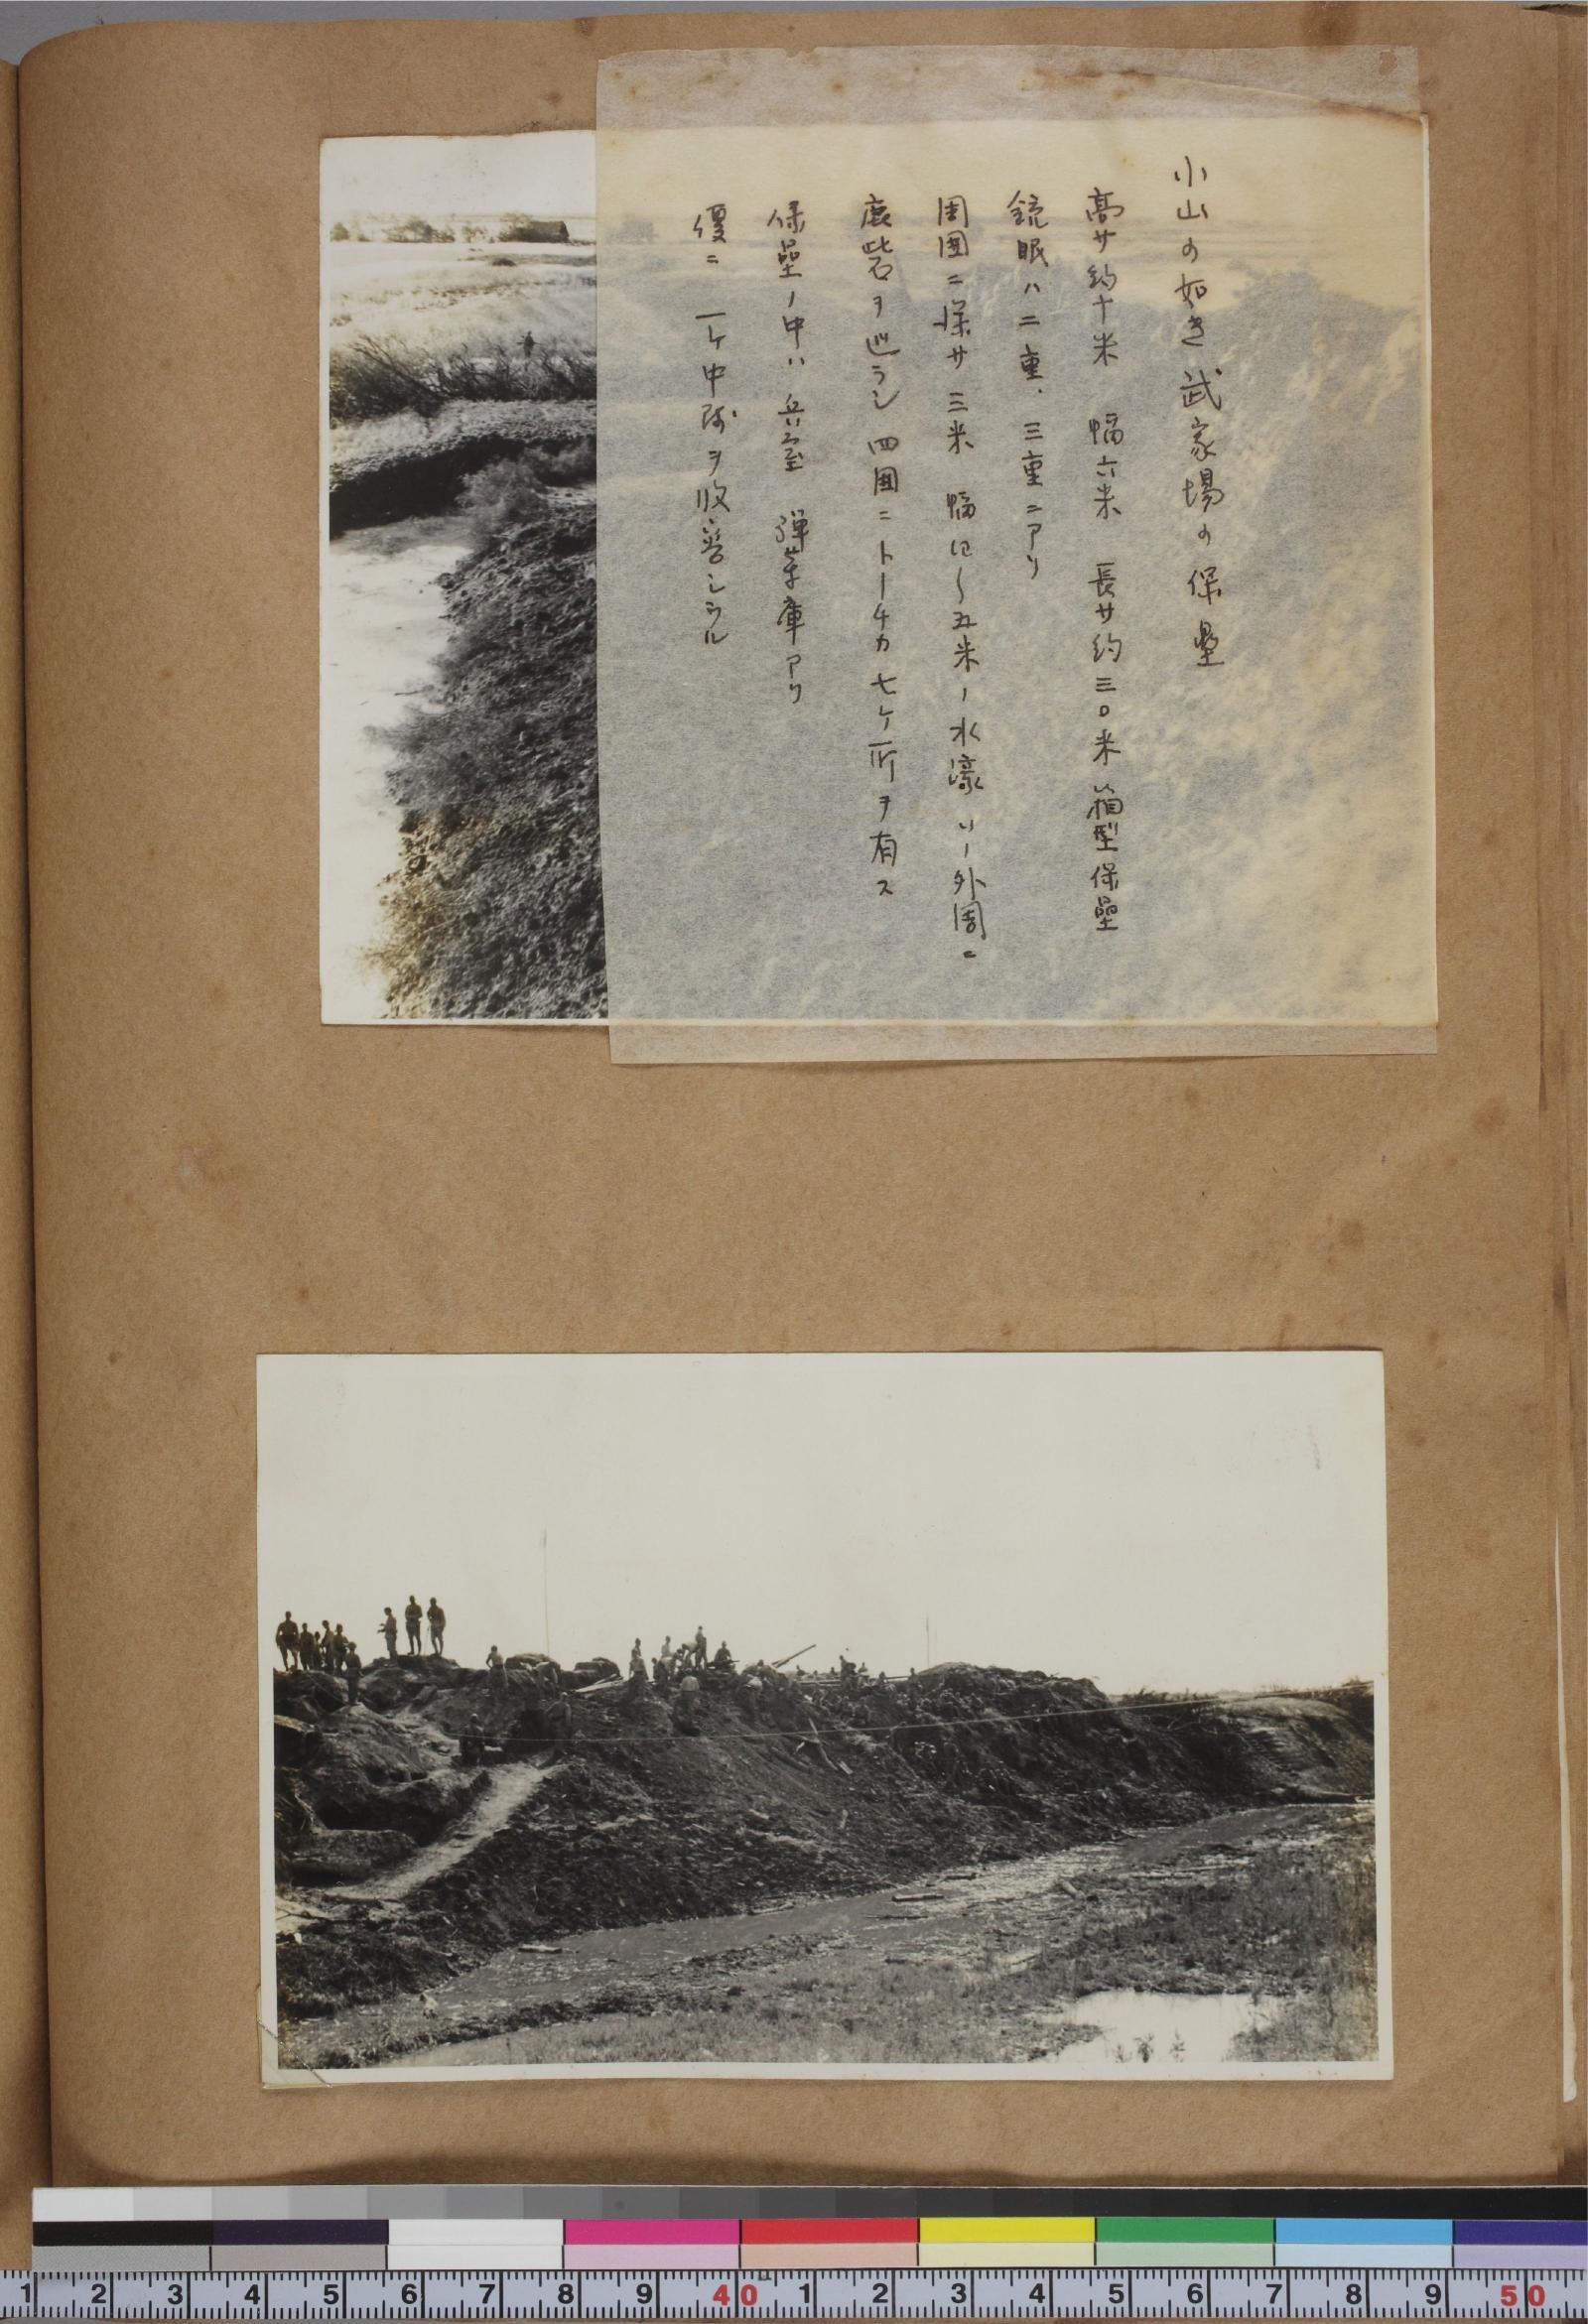 小山の如き武家場の保塁
高サ約十米 幅六米 長サ約三〇米 箱型保塁
銃眼ハ二重、三重ニアリ
周囲ニ深サ三米 幅四〜五米ノ水濠 ソノ外周ニ
鹿砦ヲ巡ラシ四囲ニトーチカ七ケ所ヲ有ス
保塁ノ中ハ兵室 弾薬庫アリ
優ニ一ケ中隊ヲ收容シウル
1 2 3 4 5 6 7 8 9 40 1 2 3 4 5 6 7 8 9 50